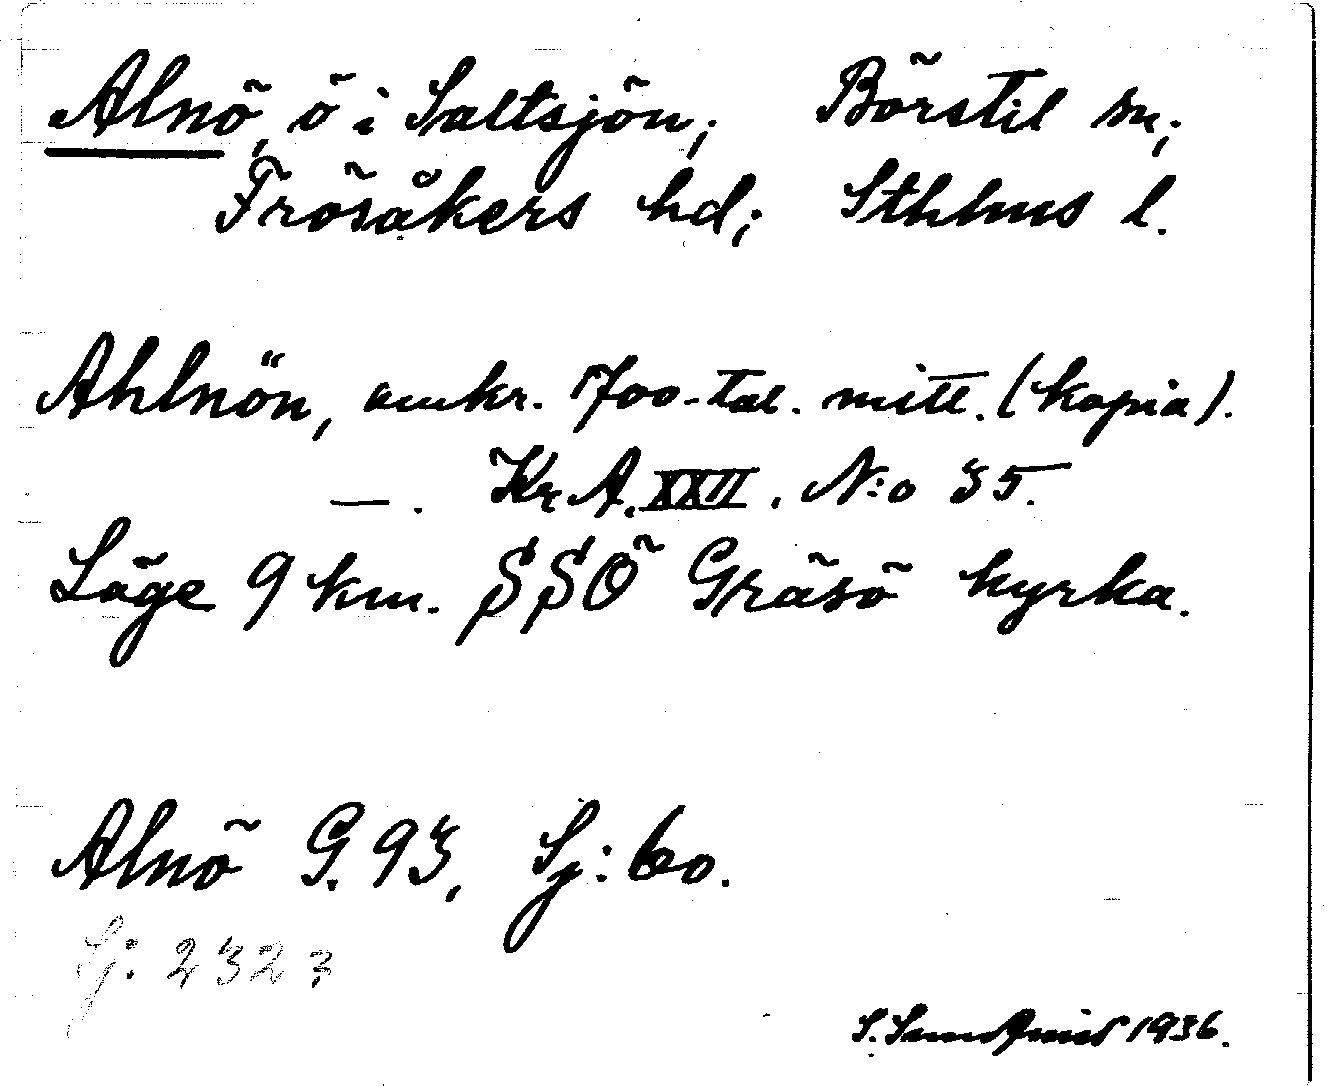 Alnö, ö i Saltsjön; Börstil sn;
Frösåkers hd; Sthlms l.
Ahlnön, omkr. 1700-tal. mitt. (kopia).
—. Kr. A. XXII. N:o 35.
Läge 9 km. SSÖ Gräsö kyrka.
Alnö G. 93, Sj: 60.
Sj: 2323
S. Sundquist 1936.